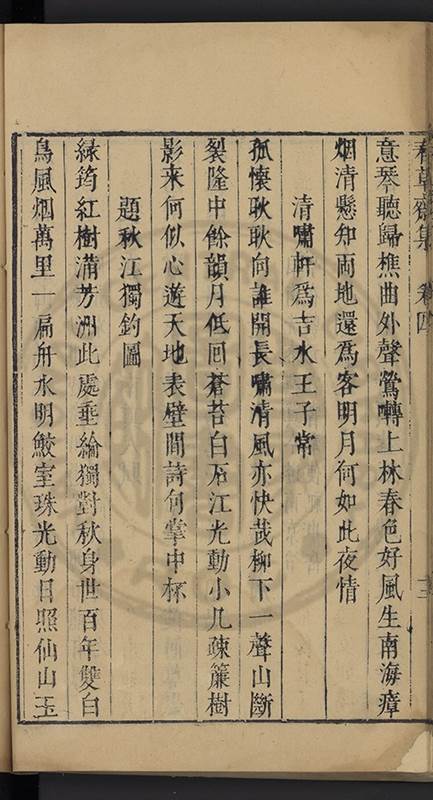 春草齋集 卷四 十三
意琴聽歸樵曲外聲鶯囀上林春色好風生南海瘴
烟清懸知両地還爲客明月何如此夜情
清嘯軒爲吉水王子常
孤懷耿耿向誰開長嘯清風亦快哉柳下一聲山斷
裂隆中餘韻月低回蒼苔白石江光動小几疎簾樹
影来何似心遊天地表壁間詩句掌中杯
題秋江獨釣圖
緑筠紅樹滿芳洲此處垂綸獨對秋身世百年雙白
鳥風烟萬里一扁舟水明鮫室珠光動日照仙山玉